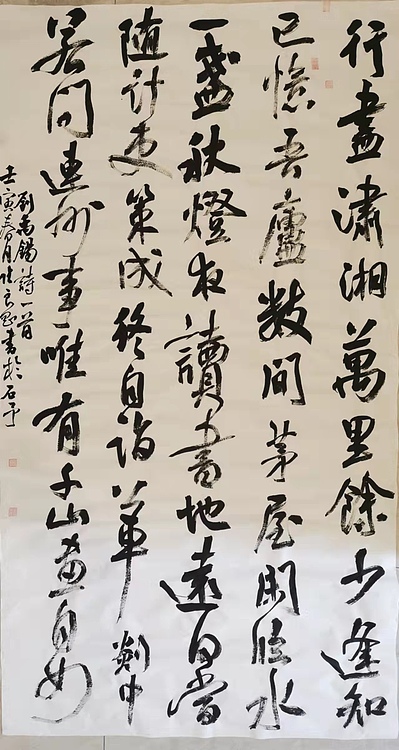 行盡瀟湘萬里餘少逢知
己憶吾廬數間茅屋閑臨水
一盞秋燈夜讀書地遠何當
随計吏策成終自詣公車剡中
若問連州事唯有千山畫不如
劉禹錫詩一首
壬寅春月書於石